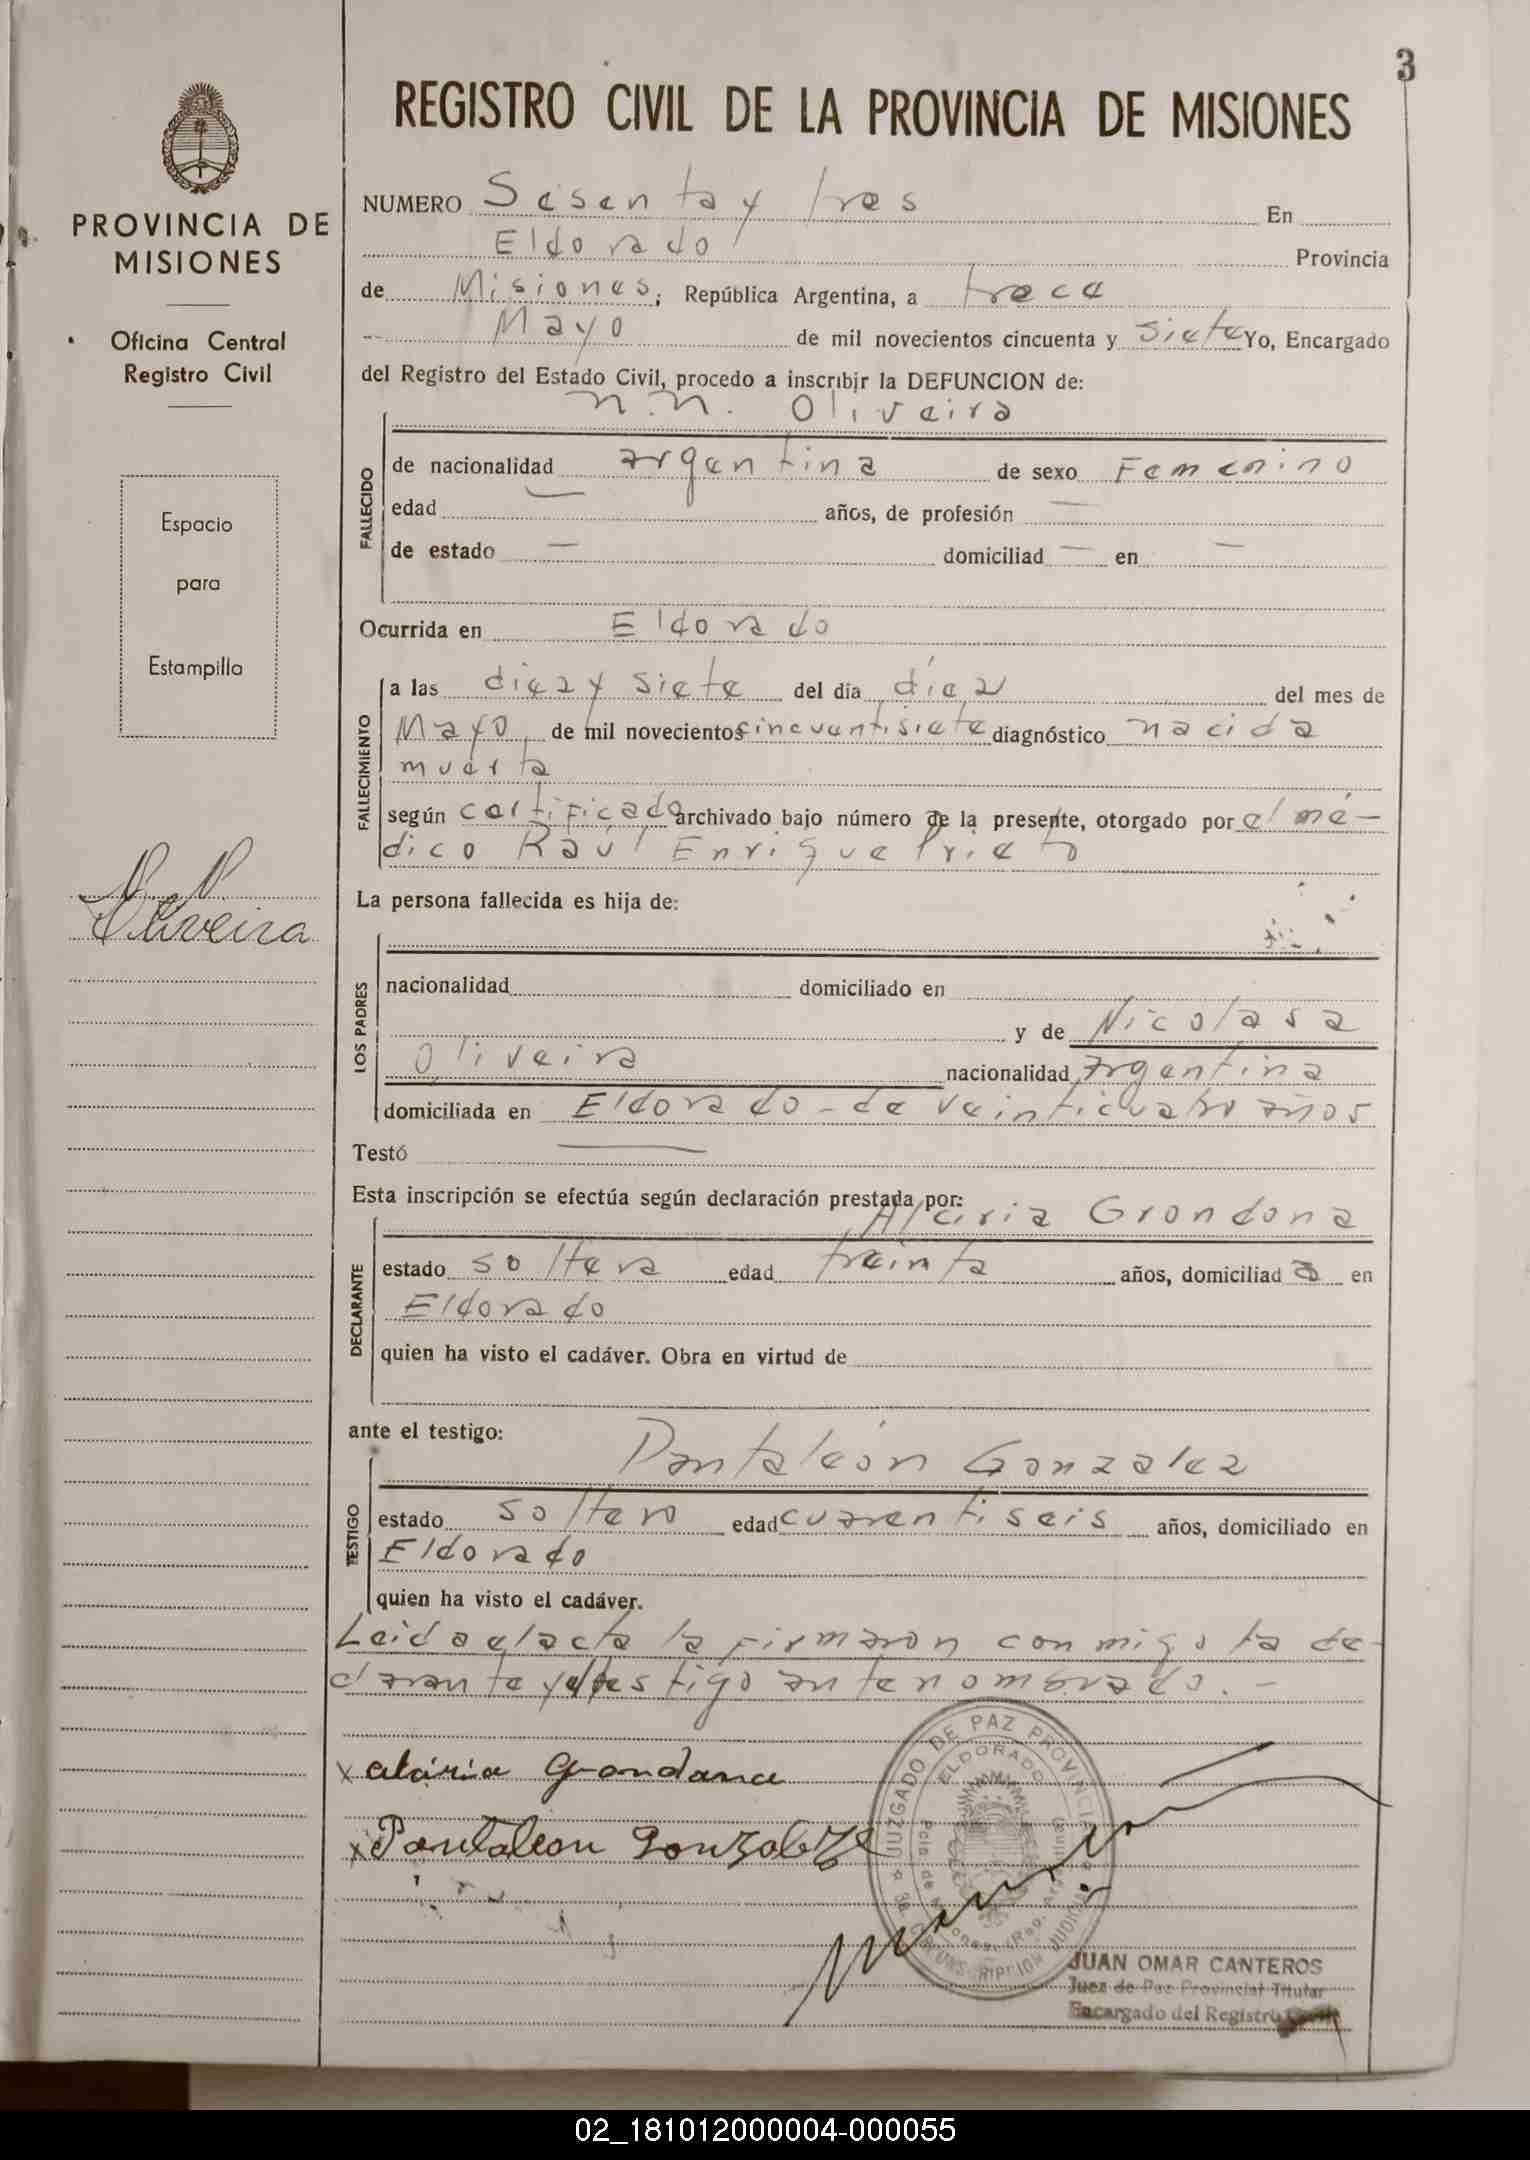 3
REGISTRO CIVIL DE LA PROVINCIA DE MISIONES
PROVINCIA DE
MISIONES
Oficina Central
Registro Civil
Espacio
para
Estampilla
N N
Oliveira
NUMERO Sesenta y tres En
Eldorado Provincia
de Misiones, República Argentina, a trece
Mayo de mil novecientos cincuenta y siete Yo, Encargado
del Registro del Estado Civil, procedo a inscribir la DEFUNCION de:
n.n. Oliveira
FALLECIDO
de nacionalidad argentina de sexo Femenino
edad — años, de profesión —
de estado — domiciliad — en —
Ocurrida en Eldorado
FALLECIMIENTO
a las diez y siete del día diez del mes de
Mayo, de mil novecientos cincuentisiete diagnóstico nacida
muerta
según certificado archivado bajo número de la presente, otorgado por el mé-
dico Raúl Enrique Prieto
La persona fallecida es hija de:
LOS PADRES
nacionalidad domiciliado en
y de Nicolasa
Oliveira nacionalidad argentina
domiciliada en Eldorado - de veinticuatro años
Testó —
Esta inscripción se efectúa según declaración prestada por:
Alciria Grondona
DECLARANTE
estado soltera edad treinta años, domiciliad a en
Eldorado
quien ha visto el cadáver. Obra en virtud de
ante el testigo:
Pantaleón Gonzalez
TESTIGO
estado soltero edad cuarentiseis años, domiciliado en
Eldorado
quien ha visto el cadáver.
Leida el acta la firmaron conmigo la de-
clarante y el testigo antenombrado. -
x alciria Grondona
x Pantaleon Gonzalez
JUZGADO DE PAZ PROVINCIAL
ELDORADO
JUAN OMAR CANTEROS
Juez de Paz Provincial Titular
Encargado del Registro Civil
02_181012000004-000055